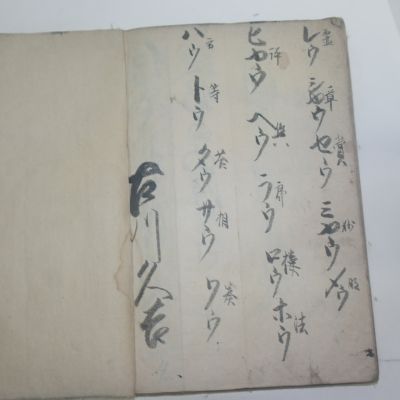 レウ シヤウ セウ ミヤウ メウ
ヒヤウ ヘウ ラウ ロウ ホウ
ハウ トウ タウ サウ ワウ
章 賞
評 郎 法
等 答 相 奏
古川久吉